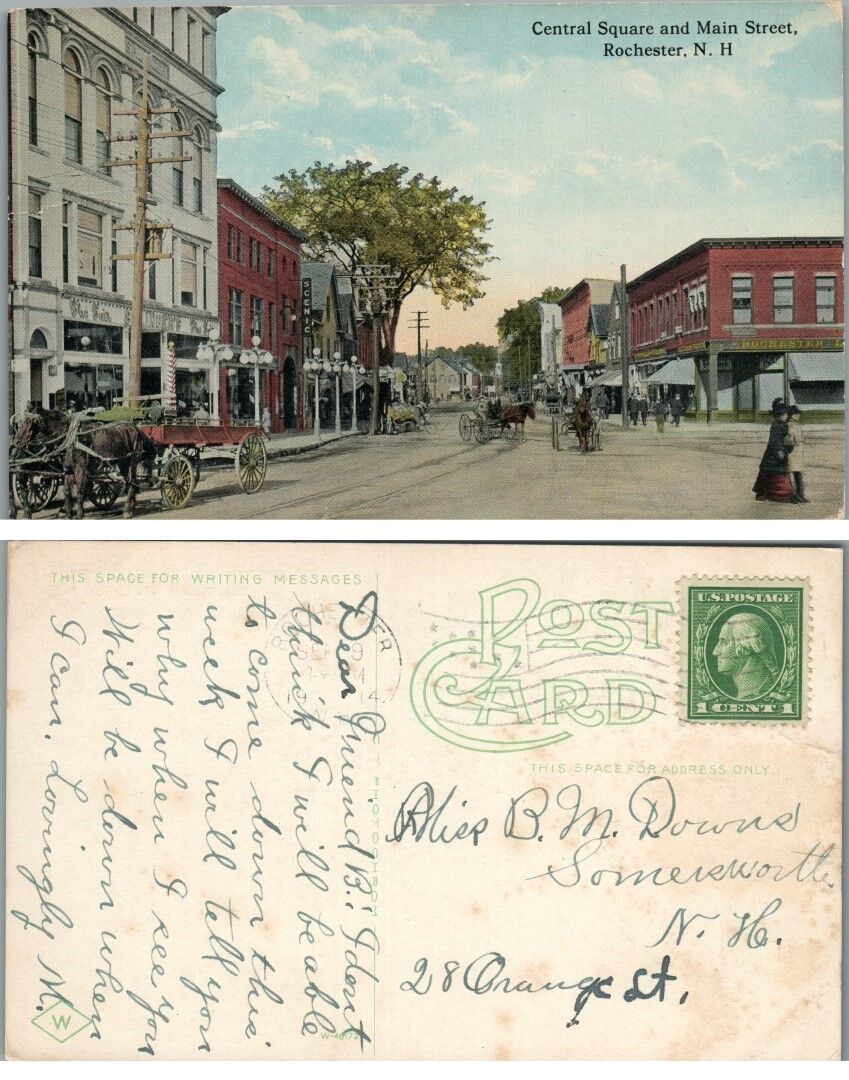 Central Square and Main Street,
Rochester, N. H
SCENIC
ROCHESTER
THIS SPACE FOR WRITING MESSAGES
Dear Friend B.; I dont
think I will be able
to come down this
week I will tell you
why when I see you
Will be down when
I can. Lovingly M.
W
POST CARD
U.S. POSTAGE
1 CENT 1
ROCHESTER
THIS SPACE FOR ADDRESS ONLY.
Miss B. M. Downs
Somersworth
N. H.
28 Orange St,